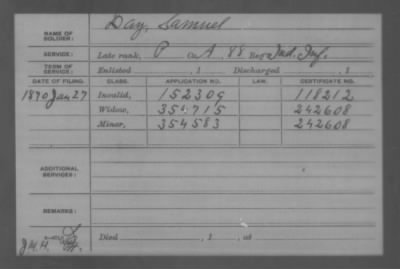 NAME OF SOLDIER: Day, Samuel
SERVICE: Late rank, P Co. A, 88 Reg't Ind. Inf.
TERM OF SERVICE: Enlisted , 1 Discharged , 1
DATE OF FILING. CLASS. APPLICATION NO. LAW. CERTIFICATE NO.
1870 Jan 27 Invalid, 152309 118212
Widow, 354715 242608
Minor, 354583 242608
ADDITIONAL SERVICES:
REMARKS:
J.M.H. Died , 1 , at